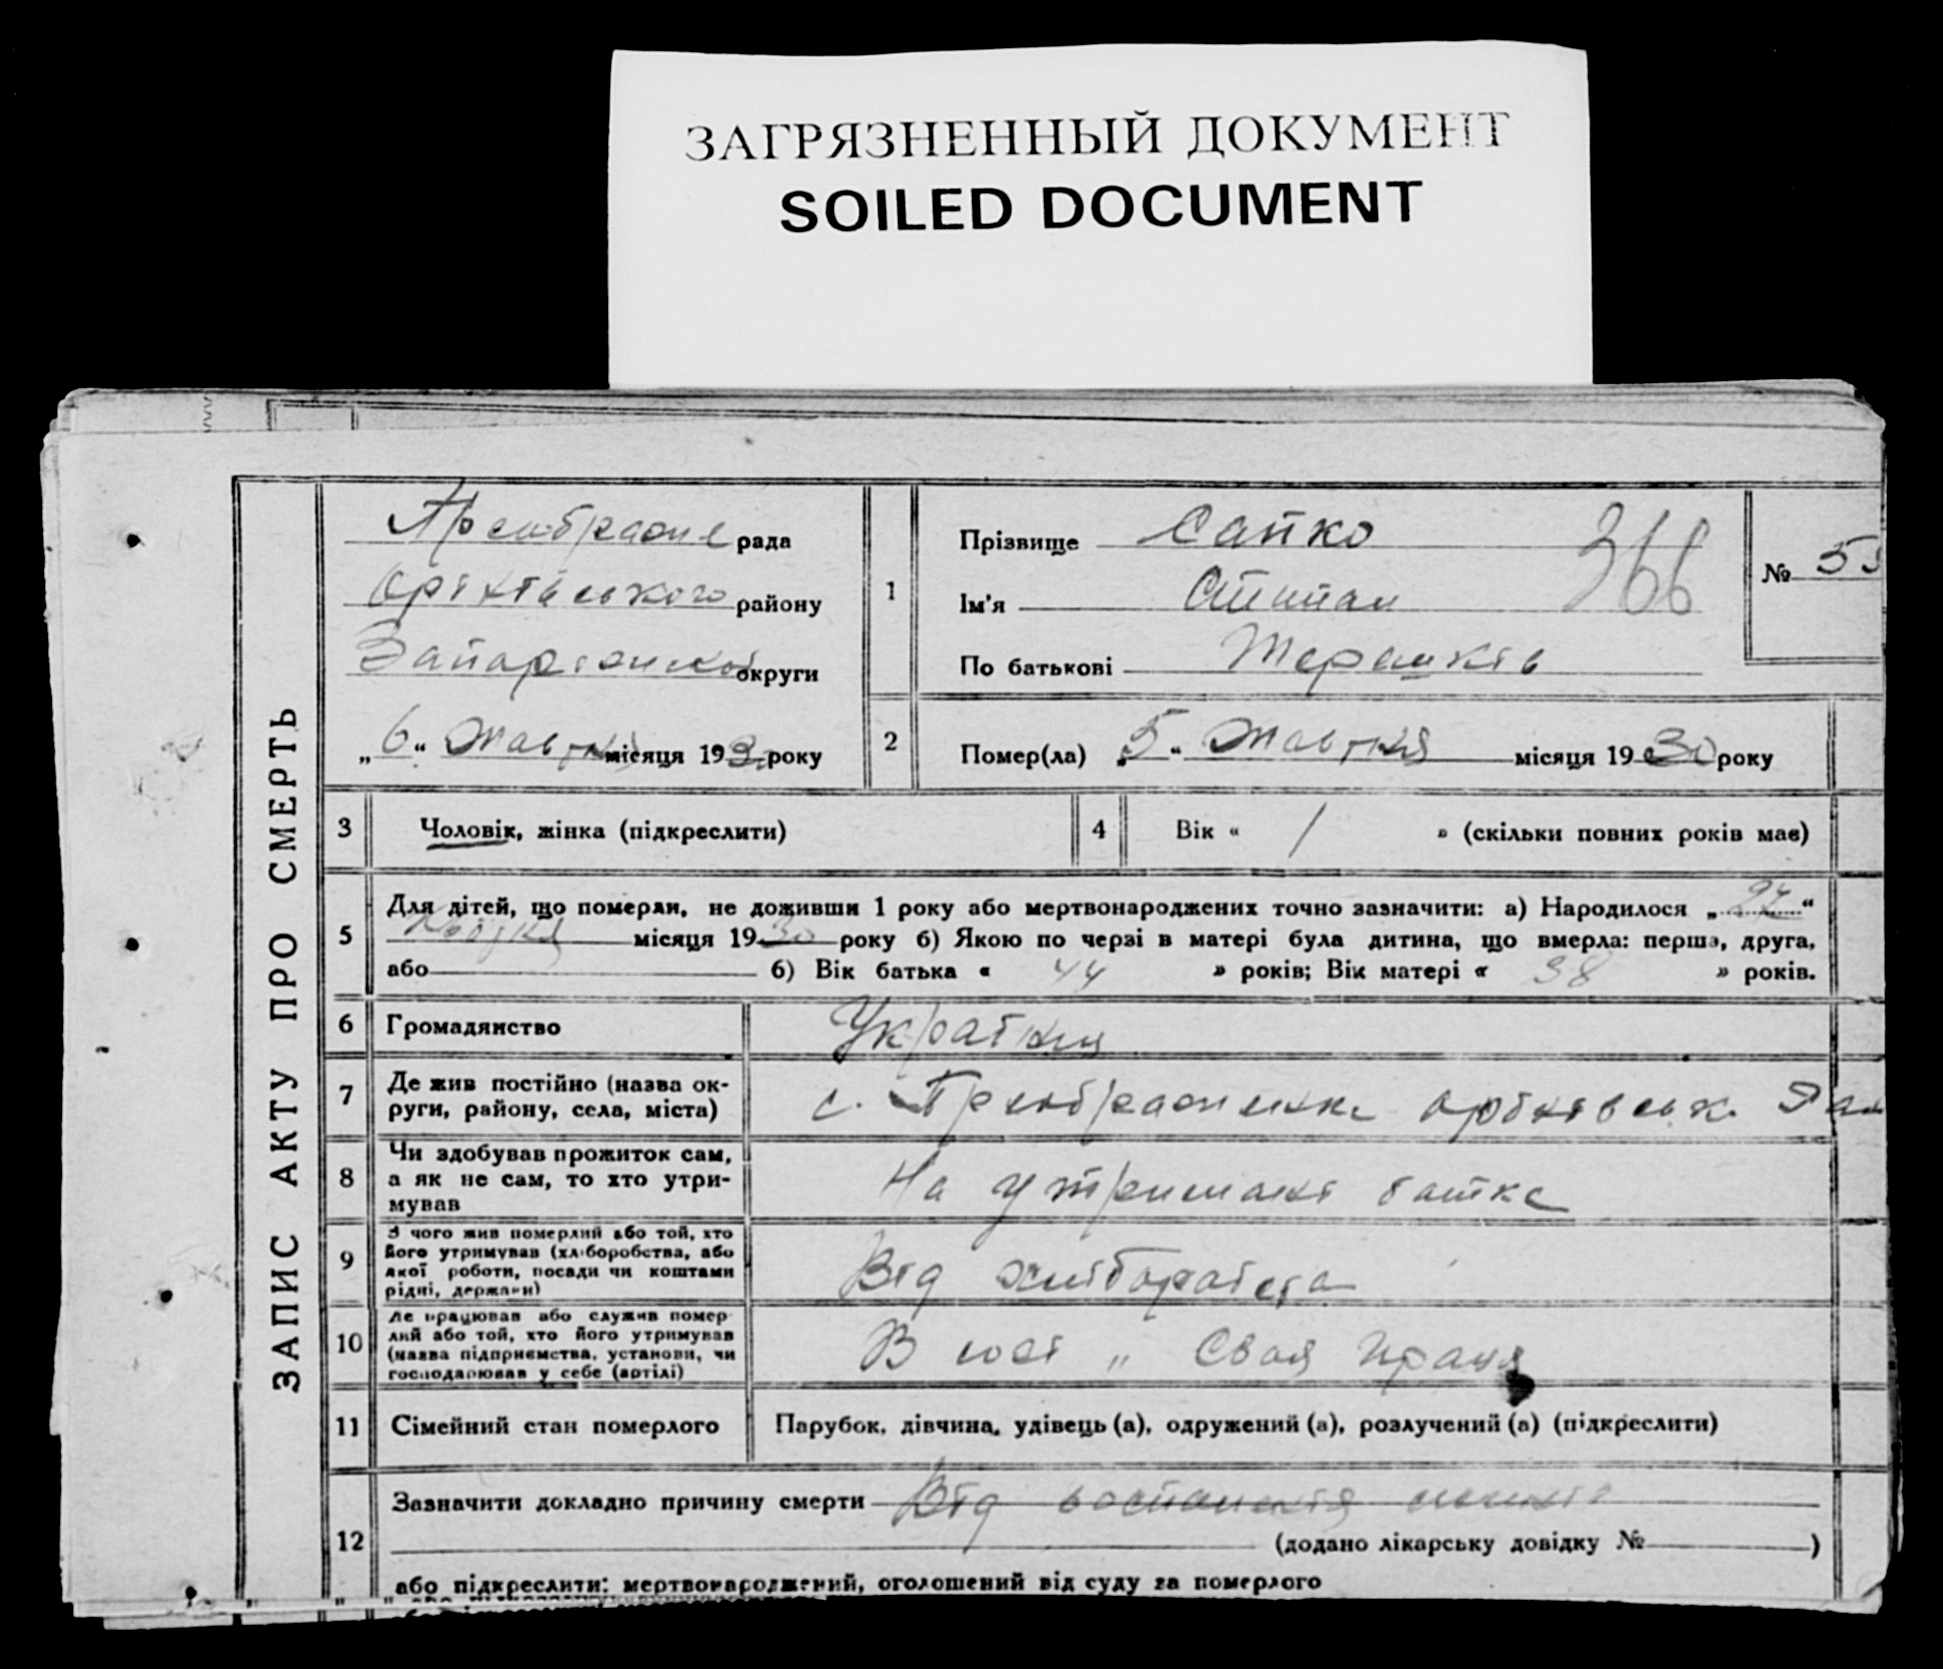 ЗАГРЯЗНЕННЫЙ ДОКУМЕНТ
SOILED DOCUMENT
ЗАПИС АКТУ ПРО СМЕРТЬ
рада
району
округи
„6“ Жовтня місяця 193 року
1
Прізвище Сапко
Ім'я Степан
По батькові
366
№ 55
2
Помер(ла) „5“ Жовтня місяця 1930 року
3 Чоловік, жінка (підкреслити)
4 Вік « / » (скільки повних років мав)
5 Для дітей, що померли, не доживши 1 року або мертвонароджених точно зазначити: а) Народилося „27“
місяця 1930 року б) Якою по черзі в матері була дитина, що вмерла: перша, друга,
або б) Вік батька « 44 » років; Вік матері « 38 » років.
6 Громадянство
7 Де жив постійно (назва ок-
руги, району, села, міста)
с.
8 Чи здобував прожиток сам,
а як не сам, то хто утри-
мував
На утриманні батка
9 З чого жив померлий або той, хто
його утримував (хліборобства, або
якої роботи, посади чи коштами
рідні, держави)
Від
10 Де працював або служив помер-
лий або той, хто його утримував
(назва підприємства, установи, чи
господарював у себе (артілі)
В „ Своя праця
11 Сімейний стан померлого
Парубок, дівчина, удівець (а), одружений (а), розлучений (а) (підкреслити)
12 Зазначити докладно причину смерти Від
(додано лікарську довідку № )
або підкреслити: мертвонароджений, оголошений від суду за померлого